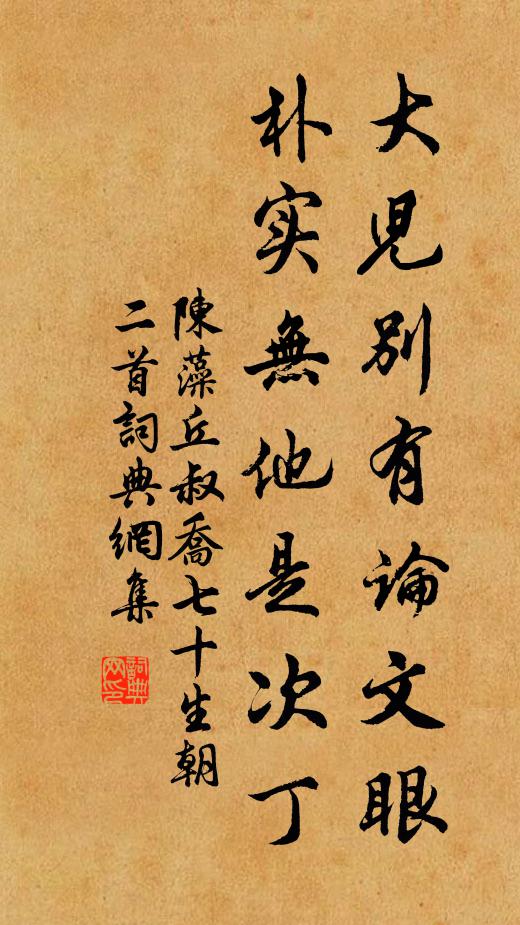 大児別有論文眼
朴实無他是次丁
陳藻丘叔喬七十生朝
二首詞典網集
詞典
网印